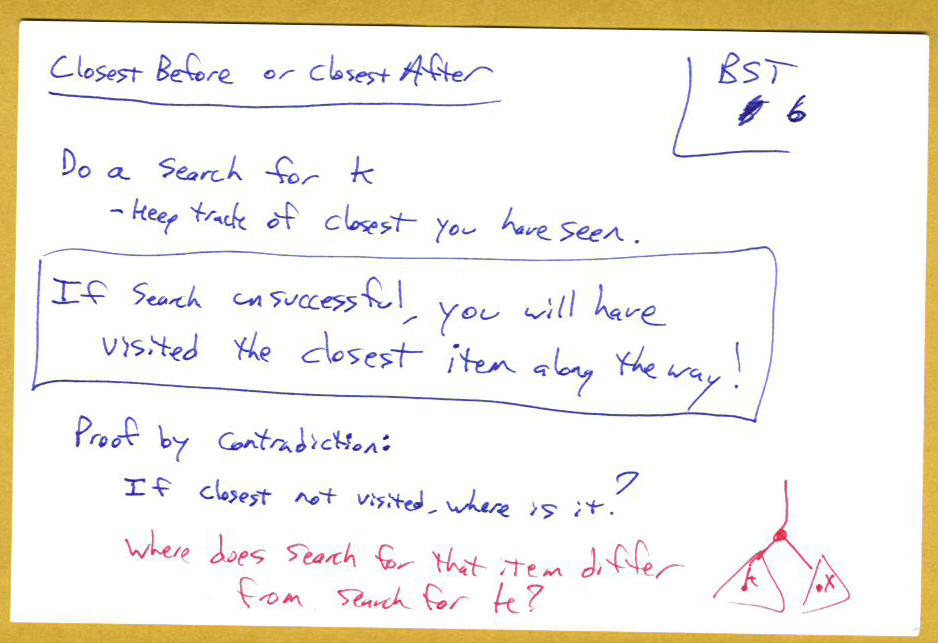 Closest Before or Closest After
BST
6
Do a search for k
- Keep track of closest you have seen.
If search unsuccessful, you will have
visited the closest item along the way!
Proof by contradiction:
If closest not visited, where is it?
Where does search for that item differ
from search for k?
k
x